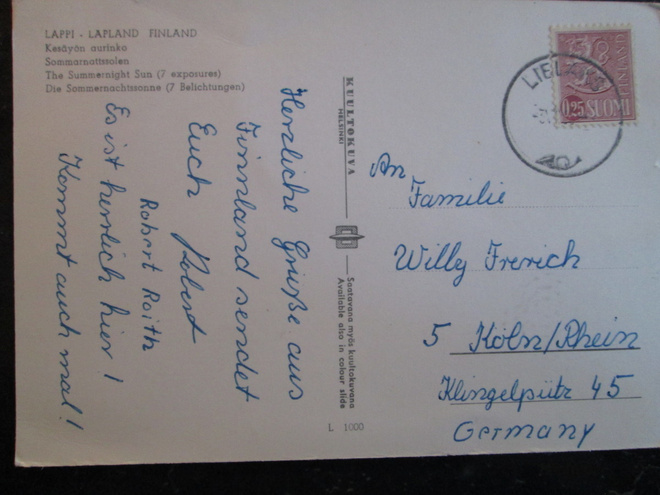 LAPPI - LAPLAND FINLAND
Kesäyön aurinko
Sommarnattssolen
The Summernight Sun (7 exposures)
Die Sommernachtssonne (7 Belichtungen)
Herzliche Grüße aus
Finnland sendet
Euch Robert
Robert Raith
Es ist herrlich hier!
Kommt auch mal!
KUULTOKUVA
HELSINKI
Saatavana myös kuultokuvana
Available also in colour slide
L 1000
0,25 SUOMI
An
Familie
Willy Frerich
5 Köln/Rhein
Klingelpütz 45
Germany